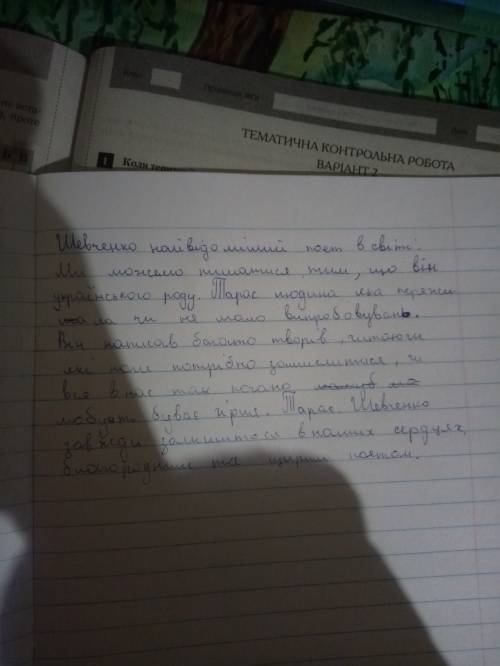 ТЕМАТИЧНА КОНТРОЛЬНА РОБОТА
ВАРІАНТ 2
1
Шевченко найвідоміший поет в світі.
Ми можемо пишатися тим, що він
українського роду. Тарас людина яка пережи
ла чи не мало випробовувань.
Він написав багато творів, читаючи
які нам потрібно замислитися, чи
все в нас так погано,
буває гірше. Тарас Шевченко
завжди залишиться в наших серцях,
благородним та щирим поетом.